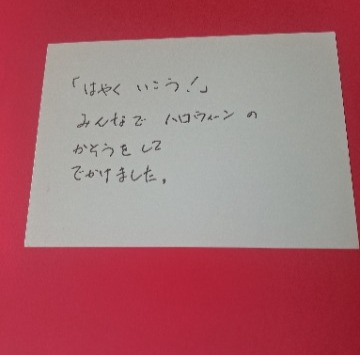 「はやく いこう!」
みんなで ハロウィーンの
かそうをして
でかけました。